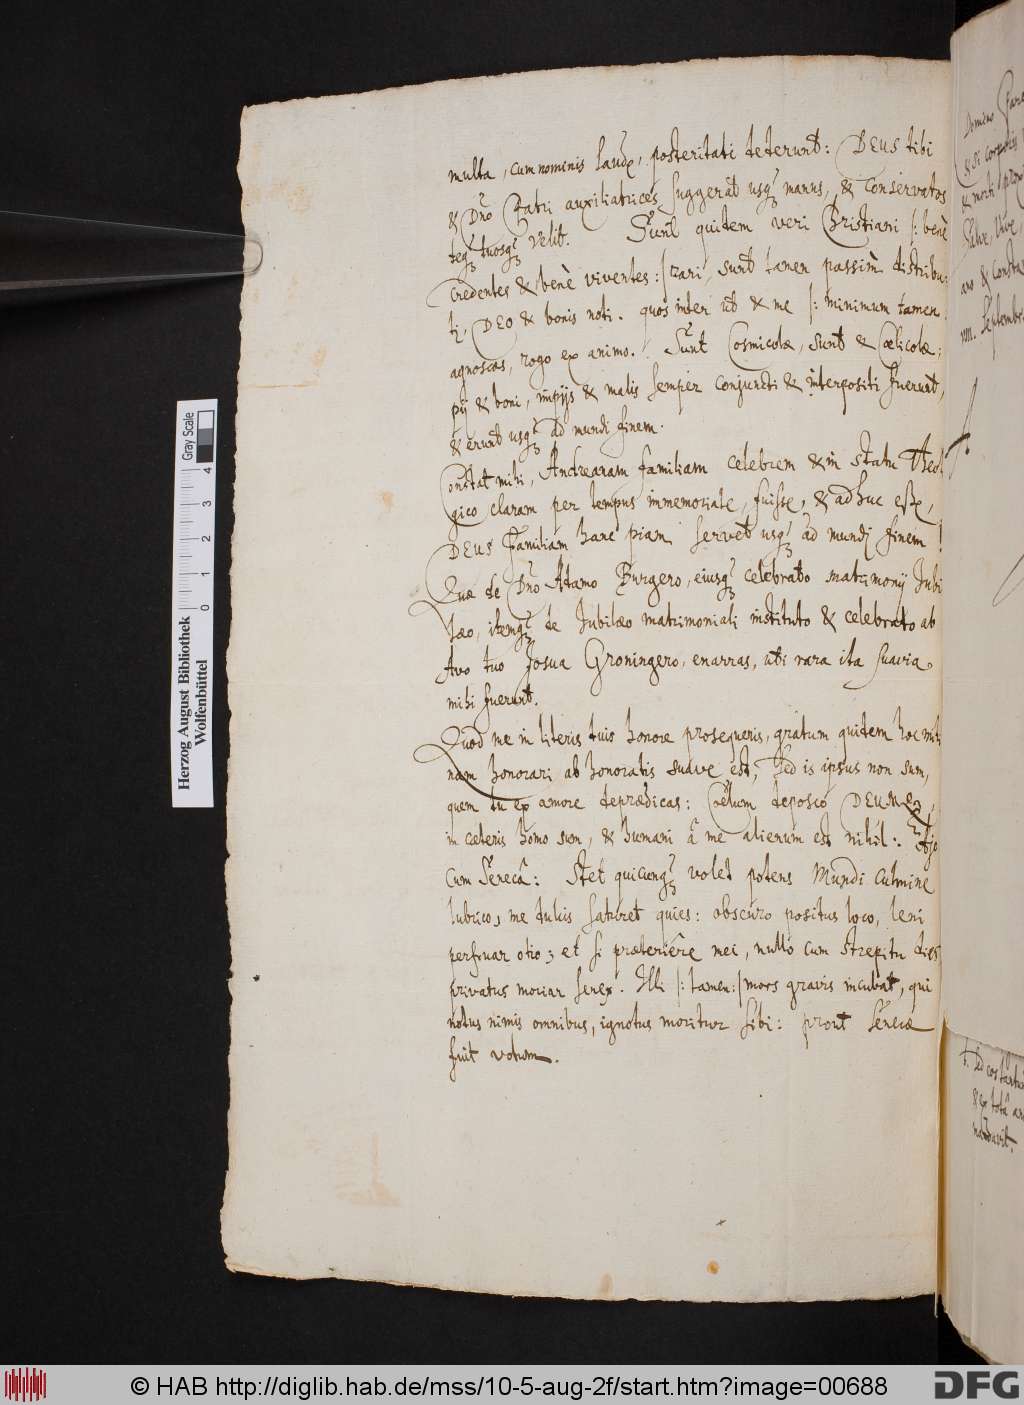 multa, cum nominis laude, posteritati dederunt: DEUS tibi
& Dn͠o Patri auxiliatrices suggerat usq₃ manus, & conservatos
teq₃ tuosq₃ velit. Sunt quidem veri Christiani |: benè
credentes & benè viventes :| rari, sunt tamen passim distribu-
ti, DEO & bonis noti. quos inter ut & me |: minimum tamen
agnoscas, rogo ex animo. Sunt Cosmicolæ, sunt & Cœlicolæ;
pij & boni, impijs & malis semper conjuncti & interpositi fuerunt,
& erunt usq₃ ad mundi finem.
Constat mihi, Andreanam familiam celebrem & in statu Theol
gico claram per tempus immemoriale, fuisse, & adhuc esse,
DEUS Familiam hanc piam servet usq₃ ad mundi finem!
Quæ de Dn͠o Adamo Burgero, eiusq₃ celebrato matrimonij Jubi
læo, itemq₃ de Jubilæo matrimoniali instituto & celebrato ab
Avo tuo Josua Groningero, enarras, uti rara ita suavia
mihi fuerunt.
Quod me in literis tuis honore prosequeris, gratum quidem hoc mihi
nam honorari ab honoratis suave est, sed is ipsus non sum,
quem tu ex amore deprædicas: Cœlum deposco DEUMq₃,
in cæteris homo sum, & humani â me alienum est nihil.
Cum Senecâ: Stet quicunq₃ volet potens Mundi culmine
lubrico, me dulcis saturet quies: obscuro positus loco, leni
perfruar otio; et si præteriêre mei, nullo cum strepitu dies
privatus moriar senex. Illi |: tamen :| mors gravis incubat, qui
notus nimis omnibus, ignotus moritur sibi: prout Senecæ
fuit votum.
Domino
& si corporis
& morti
Salve, Vive,
ano & Consta
Septembr
& ex totâ
mandavit.
Herzog August Bibliothek
Wolfenbüttel
0 1 2 3 4
Gray Scale
© HAB http://diglib.hab.de/mss/10-5-aug-2f/start.htm?image=00688
DFG